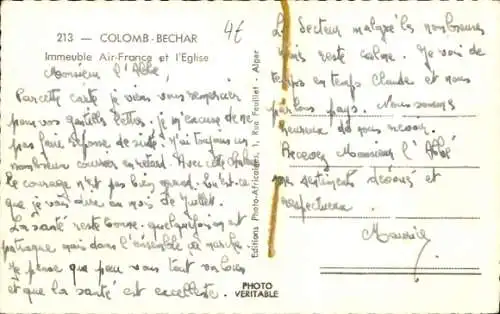 213 — COLOMB-BECHAR
Immeuble Air-France et l'Eglise
4€
Monsieur l'Abbé,
Par cette carte je viens vous remercier
pour vos gentilles lettres. je m'excuse de ne
pas faire réponse de suite. j'ai toujours un
nombreux courrier en retard. Avec cette chaleur
le courage n'est pas bien grand. Qu'est-ce
que je vais dire au mois de Juillet.
La santé reste bonne. quelquefois on est
patraque mais dans l'ensemble ça marche.
Je pense que pour vous tout va bien
et que la santé est excellente.
Le Secteur malgré les nombreux
reste calme. Je vois de
temps en temps Claude et nous
parlons pays. Nous sommes
heureux de nous revoir.
Recevez Monsieur l'Abbé
mes sentiments dévoués et
respectueux.
Maurice
Editions Photo-Africaines, 1, Rue Feuillet - Alger
PHOTO
VERITABLE